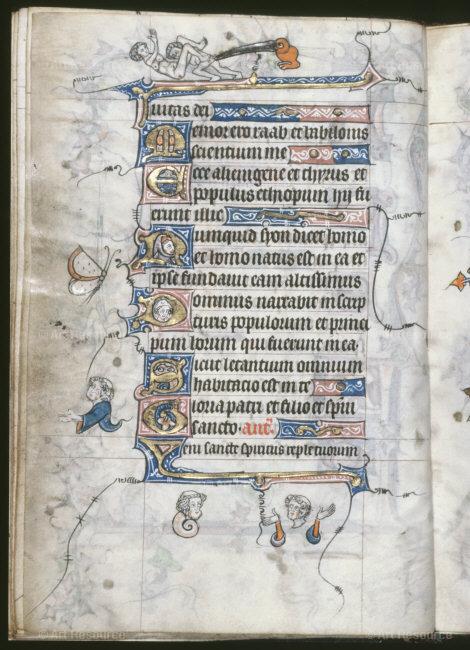 iuitas dei
Memor ero raab et babilonis
scientium me
Ecce alienigene et thyrus et
populus ethiopum hij fu
erunt illic
Nunquid syon dicet homo
et homo natus est in ea et
ipse fundauit eam altissimus
Dominus narrabit in scrip
turis populorum et princi
pum horum qui fuerunt in ea
Sicut letantium omnium
habitacio est in te
Gloria patri et filio et spiri
sancto anc.
Veni sancte spiritus reple tuorum
© Art Resource
© Art Resource